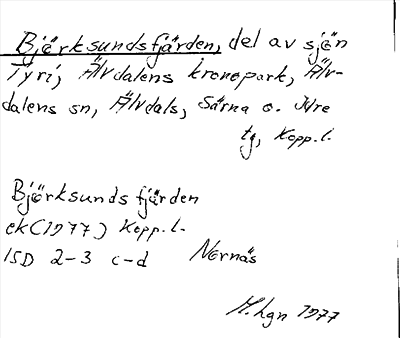 Björksundsfjärden, del av sjön
Tyri, Älvdalens kronopark, Älv-
dalens sn, Älvdals, Särna o. Idre
tg, Kopp. l.
Björksundsfjärden
ek (1977) Kopp. l.
15D 2-3 c-d Nornäs
M. Lgn 1977